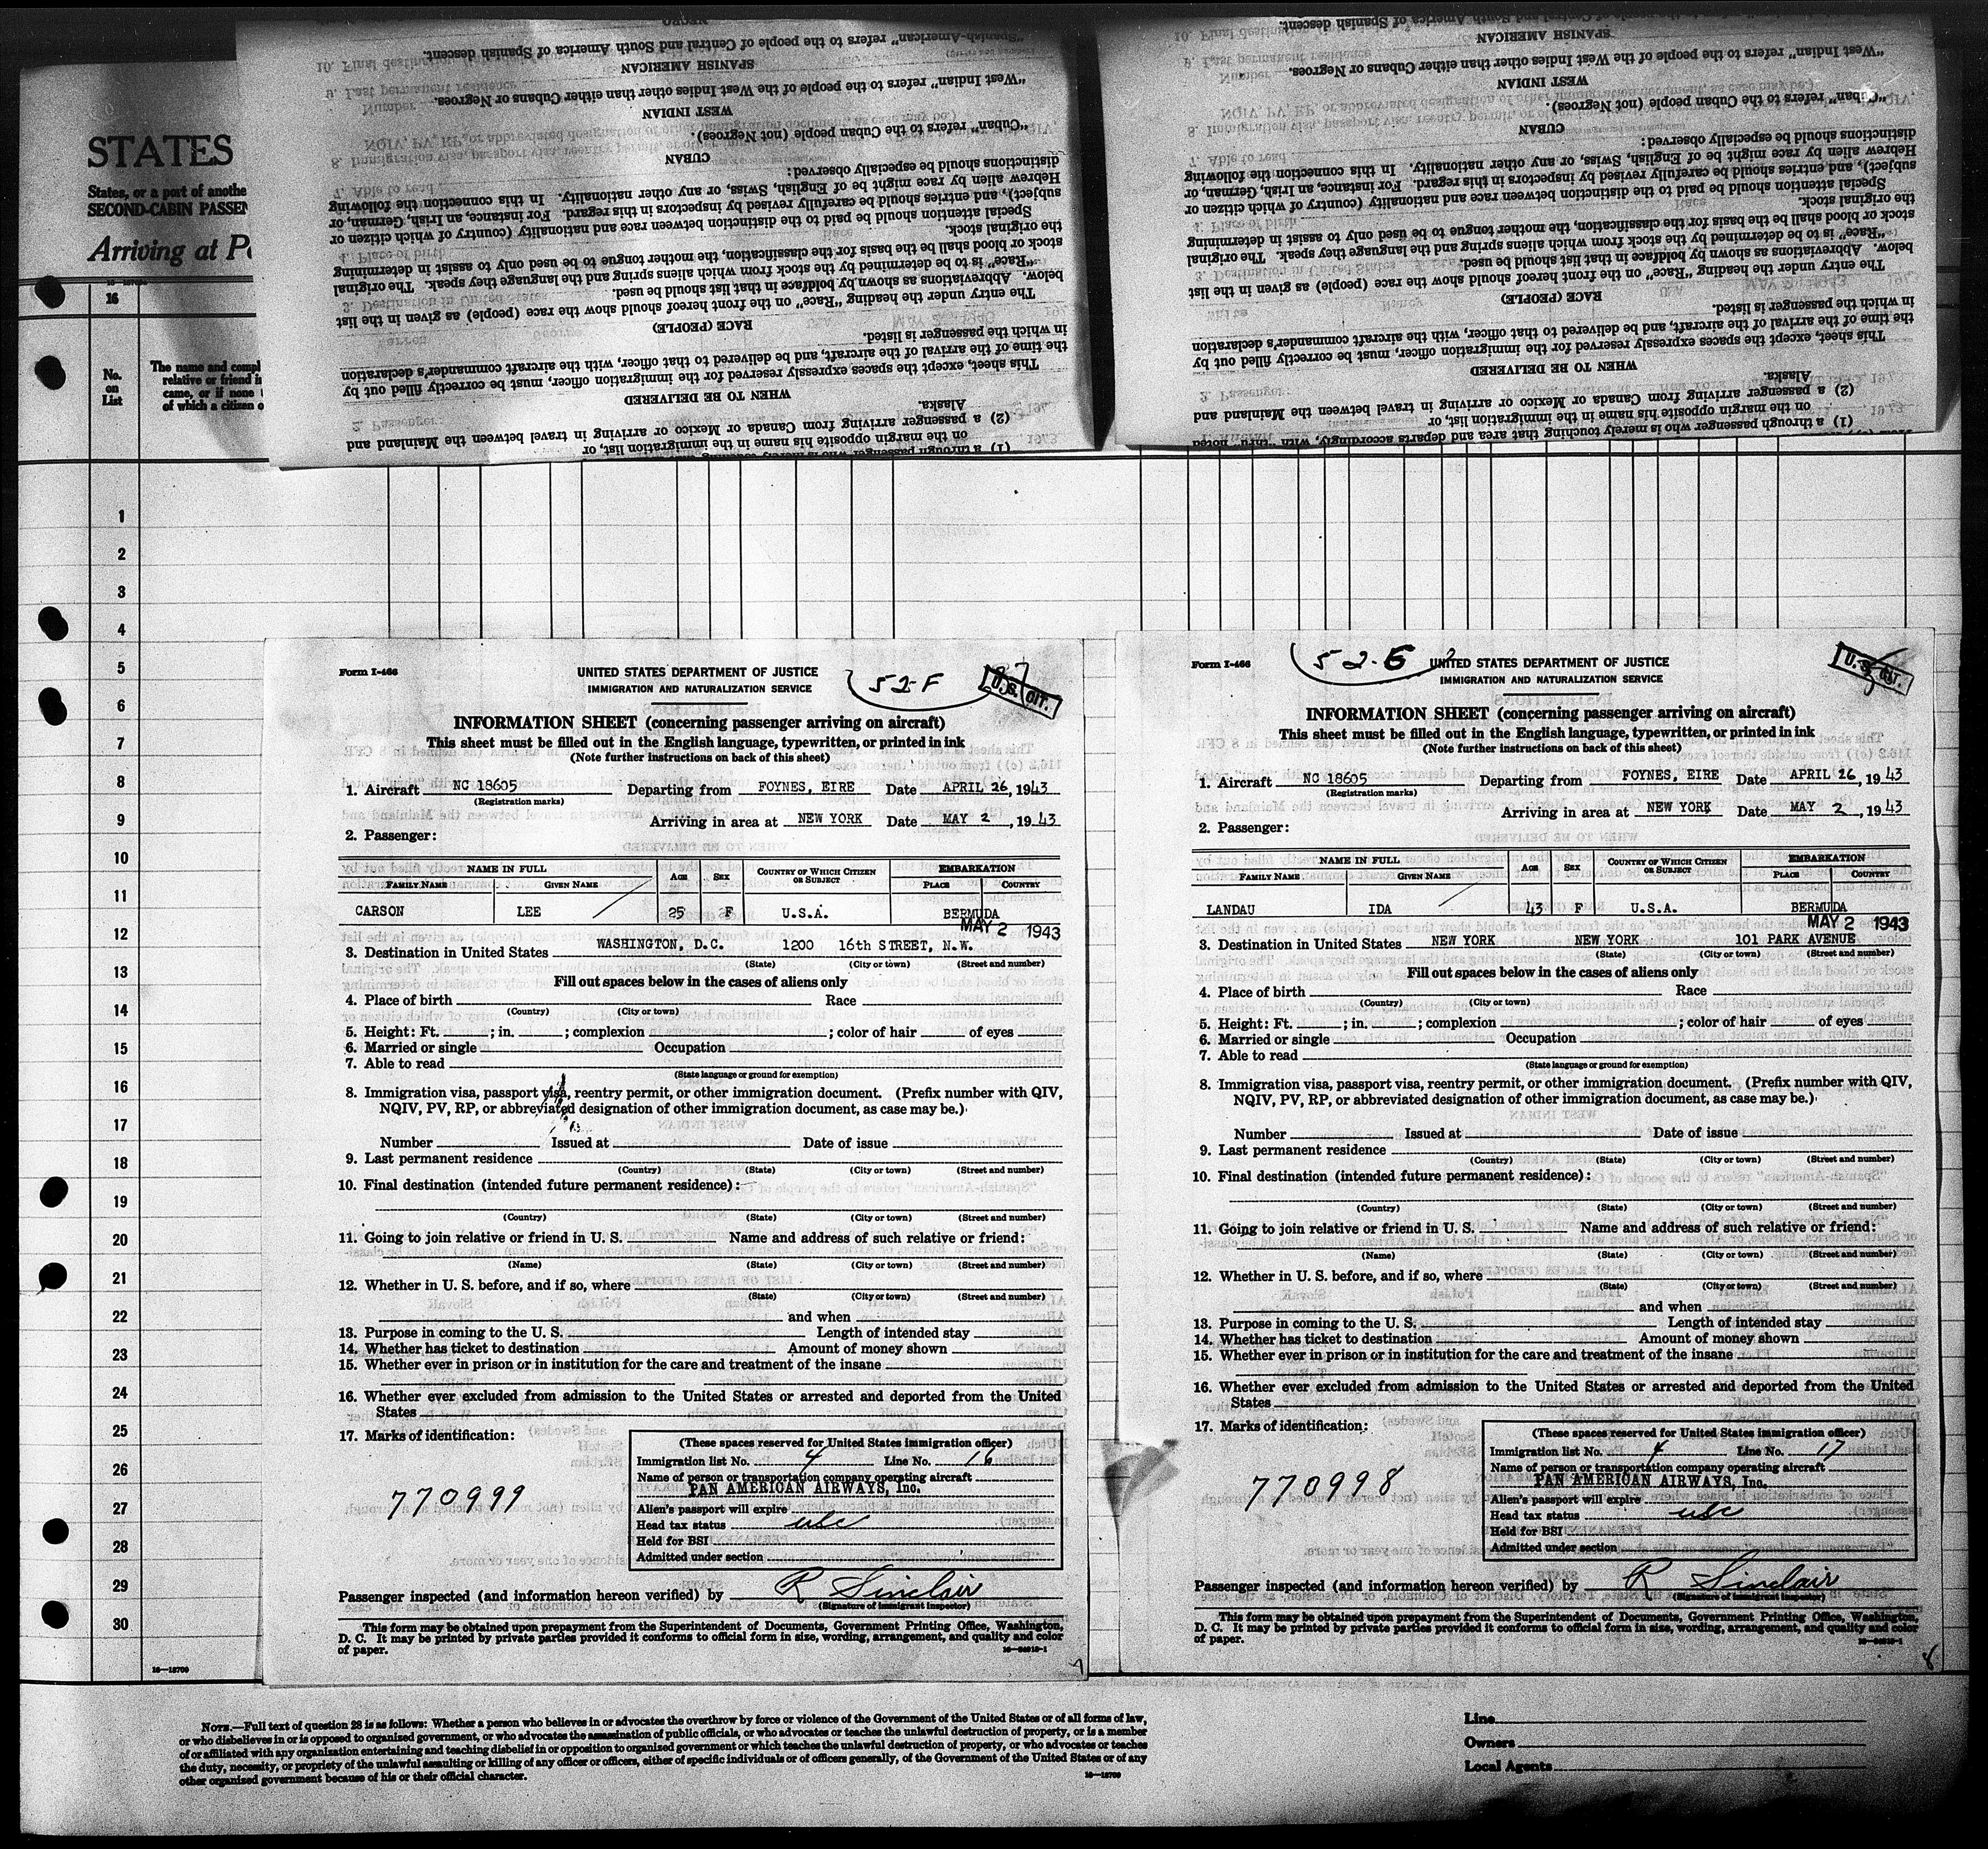 STATES
States, or a part of anothe
SECOND-CABIN PASSEN
Arriving at Po
16
No.
on
List
The name and compl
relative or friend i
came, or if none
of which a citizen o
1
2
3
4
5
6
7
8
9
10
11
12
13
14
15
16
17
18
19
20
21
22
23
24
25
26
27
28
29
30
16—13709
(1) a through passenger who is merely touching
on the margin opposite his name in the immigration list, or
(2) a passenger arriving from Canada or Mexico or arriving in travel between the Mainland and
Alaska.
WHEN TO BE DELIVERED
This sheet, except the spaces expressly reserved for the immigration officer, must be correctly filled out by
the time of the arrival of the aircraft, and be delivered to that officer, with the aircraft commander's declaration
in which the passenger is listed.
RACE (PEOPLE)
The entry under the heading "Race" on the front hereof should show the race (people) as given in the list
below. Abbreviations as shown by boldface in that list should be used.
"Race" is to be determined by the stock from which aliens spring and the language they speak. The original
stock or blood shall be the basis for the classification, the mother tongue to be used only to assist in determining
the original stock.
Special attention should be paid to the distinction between race and nationality (country of which citizen or
subject), and entries should be carefully revised by inspectors in this regard. For instance, an Irish, German, or
Hebrew alien by race might be of English, Swiss, or any other nationality. In this connection the following
distinctions should be especially observed:
CUBAN
"Cuban" refers to the Cuban people (not Negroes).
WEST INDIAN
"West Indian" refers to the people of the West Indies other than either Cubans or Negroes.
SPANISH AMERICAN
"Spanish-American" refers to the people of Central and South America of Spanish descent.
NEGRO
(1) a through passenger who is merely touching that area and departs accordingly, with "thru" noted
on the margin opposite his name in the immigration list, or
(2) a passenger arriving from Canada or Mexico or arriving in travel between the Mainland and
Alaska.
WHEN TO BE DELIVERED
This sheet, except the spaces expressly reserved for the immigration officer, must be correctly filled out by
the time of the arrival of the aircraft, and be delivered to that officer, with the aircraft commander's declaration
in which the passenger is listed.
RACE (PEOPLE)
The entry under the heading "Race" on the front hereof should show the race (people) as given in the list
below. Abbreviations as shown by boldface in that list should be used.
"Race" is to be determined by the stock from which aliens spring and the language they speak. The original
stock or blood shall be the basis for the classification, the mother tongue to be used only to assist in determining
the original stock.
Special attention should be paid to the distinction between race and nationality (country of which citizen or
subject), and entries should be carefully revised by inspectors in this regard. For instance, an Irish, German, or
Hebrew alien by race might be of English, Swiss, or any other nationality. In this connection the following
distinctions should be especially observed:
CUBAN
"Cuban" refers to the Cuban people (not Negroes).
WEST INDIAN
"West Indian" refers to the people of the West Indies other than either Cubans or Negroes.
SPANISH AMERICAN
of Central and South America of Spanish descent.
Form I-466
UNITED STATES DEPARTMENT OF JUSTICE
IMMIGRATION AND NATURALIZATION SERVICE
52-F
U.S. CIT.
INFORMATION SHEET (concerning passenger arriving on aircraft)
This sheet must be filled out in the English language, typewritten, or printed in ink
(Note further instructions on back of this sheet)
1. Aircraft NC 18605 Departing from FOYNES, EIRE Date APRIL 26, 1943
(Registration marks)
Arriving in area at NEW YORK Date MAY 2, 1943
2. Passenger:
NAME IN FULL AGE SEX COUNTRY OF WHICH CITIZEN OR SUBJECT EMBARKATION
FAMILY NAME GIVEN NAME PLACE COUNTRY
CARSON LEE 25 F U.S.A. BERMUDA
MAY 2 1943
3. Destination in United States WASHINGTON, D.C. 1200 16th STREET, N.W.
(State) (City or town) (Street and number)
Fill out spaces below in the cases of aliens only
4. Place of birth Race
(Country) (City or town)
5. Height: Ft. ; in. ; complexion ; color of hair of eyes
6. Married or single Occupation
7. Able to read
(State language or ground for exemption)
8. Immigration visa, passport visa, reentry permit, or other immigration document. (Prefix number with QIV,
NQIV, PV, RP, or abbreviated designation of other immigration document, as case may be.)
Number Issued at Date of issue
9. Last permanent residence
(Country) (State) (City or town) (Street and number)
10. Final destination (intended future permanent residence):
(Country) (State) (City or town) (Street and number)
11. Going to join relative or friend in U. S. Name and address of such relative or friend:
(Name) (State) (City or town) (Street and number)
12. Whether in U. S. before, and if so, where
(State) (City or town) (Street and number)
and when
13. Purpose in coming to the U. S. Length of intended stay
14. Whether has ticket to destination Amount of money shown
15. Whether ever in prison or in institution for the care and treatment of the insane
16. Whether ever excluded from admission to the United States or arrested and deported from the United
States
17. Marks of identification:
770999
(These spaces reserved for United States immigration officer)
Immigration list No. 4 Line No. 16
Name of person or transportation company operating aircraft
PAN AMERICAN AIRWAYS, Inc.
Alien's passport will expire
Head tax status usc
Held for BSI
Admitted under section
Passenger inspected (and information hereon verified) by R Sinclair
(Signature of immigrant inspector)
This form may be obtained upon prepayment from the Superintendent of Documents, Government Printing Office, Washington,
D. C. It may be printed by private parties provided it conforms to official form in size, wording, arrangement, and quality and color
of paper.
7
Form I-466
52-E
UNITED STATES DEPARTMENT OF JUSTICE
IMMIGRATION AND NATURALIZATION SERVICE
U.S. CIT.
INFORMATION SHEET (concerning passenger arriving on aircraft)
This sheet must be filled out in the English language, typewritten, or printed in ink
(Note further instructions on back of this sheet)
1. Aircraft NC 18605 Departing from FOYNES, EIRE Date APRIL 26, 1943
(Registration marks)
Arriving in area at NEW YORK Date MAY 2, 1943
2. Passenger:
NAME IN FULL AGE SEX COUNTRY OF WHICH CITIZEN OR SUBJECT EMBARKATION
FAMILY NAME GIVEN NAME PLACE COUNTRY
LANDAU IDA 43 F U.S.A. BERMUDA
MAY 2 1943
3. Destination in United States NEW YORK NEW YORK 101 PARK AVENUE
(State) (City or town) (Street and number)
Fill out spaces below in the cases of aliens only
4. Place of birth Race
(Country) (City or town)
5. Height: Ft. ; in. ; complexion ; color of hair of eyes
6. Married or single Occupation
7. Able to read
(State language or ground for exemption)
8. Immigration visa, passport visa, reentry permit, or other immigration document. (Prefix number with QIV,
NQIV, PV, RP, or abbreviated designation of other immigration document, as case may be.)
Number Issued at Date of issue
9. Last permanent residence
(Country) (State) (City or town) (Street and number)
10. Final destination (intended future permanent residence):
(Country) (State) (City or town) (Street and number)
11. Going to join relative or friend in U. S. Name and address of such relative or friend:
(Name) (State) (City or town) (Street and number)
12. Whether in U. S. before, and if so, where
(State) (City or town) (Street and number)
and when
13. Purpose in coming to the U. S. Length of intended stay
14. Whether has ticket to destination Amount of money shown
15. Whether ever in prison or in institution for the care and treatment of the insane
16. Whether ever excluded from admission to the United States or arrested and deported from the United
States
17. Marks of identification:
770998
(These spaces reserved for United States immigration officer)
Immigration list No. 4 Line No. 17
Name of person or transportation company operating aircraft
PAN AMERICAN AIRWAYS, Inc.
Alien's passport will expire
Head tax status usc
Held for BSI
Admitted under section
Passenger inspected (and information hereon verified) by R Sinclair
(Signature of immigrant inspector)
This form may be obtained upon prepayment from the Superintendent of Documents, Government Printing Office, Washington,
D. C. It may be printed by private parties provided it conforms to official form in size, wording, arrangement, and quality and color
of paper.
8
NOTE.—Full text of question 28 is as follows: Whether a person who believes in or advocates the overthrow by force or violence of the Government of the United States or of all forms of law,
or who disbelieves in or is opposed to organized government, or who advocates the assassination of public officials, or who advocates or teaches the unlawful destruction of property, or is a member
of or affiliated with any organization entertaining and teaching disbelief in or opposition to organized government or which teaches the unlawful destruction of property, or who advocates or teaches
the duty, necessity, or propriety of the unlawful assaulting or killing of any officer or officers, either of specific individuals or of officers generally, of the Government of the United States or of any
other organized government because of his or their official character.
16—13709
Line
Owners
Local Agents